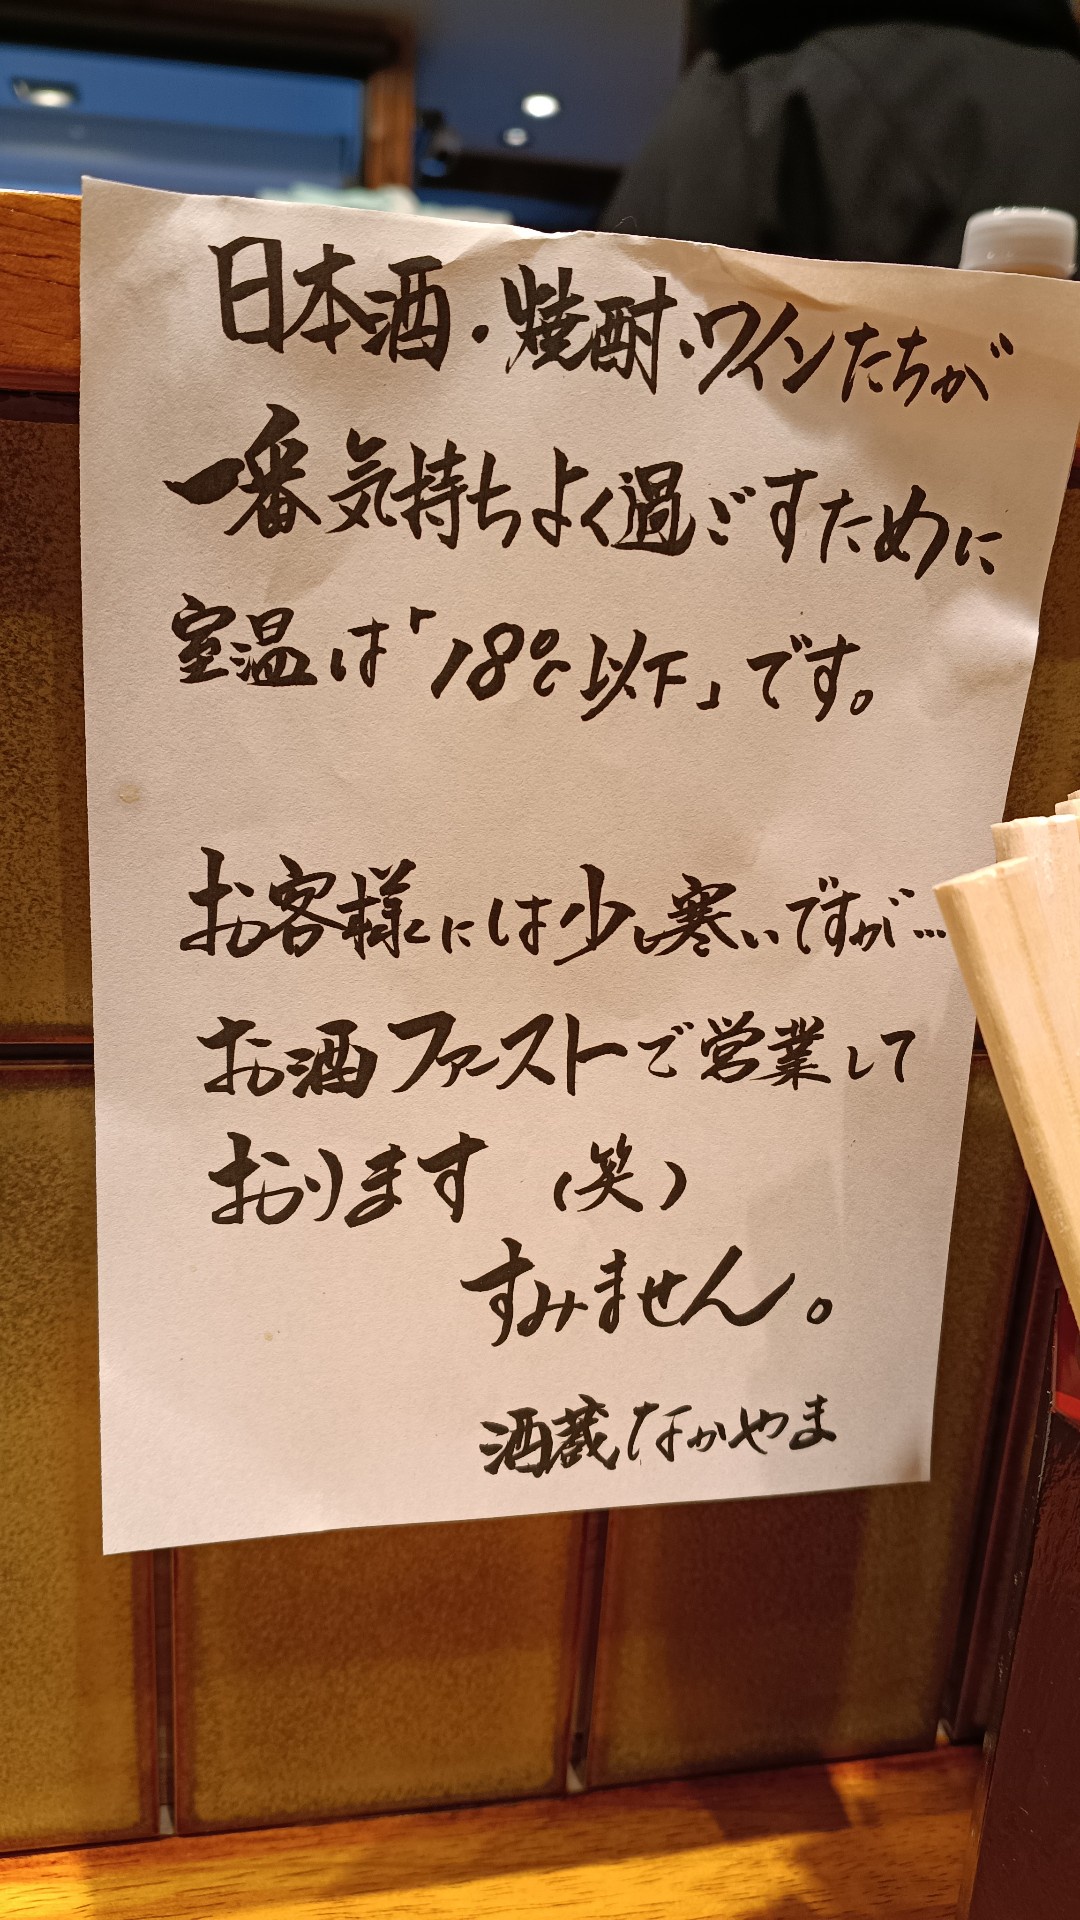 日本酒・焼酎・ワインたちが
一番気持ちよく過ごすために
室温は「18℃以下」です。
お客様には少し寒いですが…
お酒ファーストで営業して
おります (笑)
すみません。
酒蔵なかやま